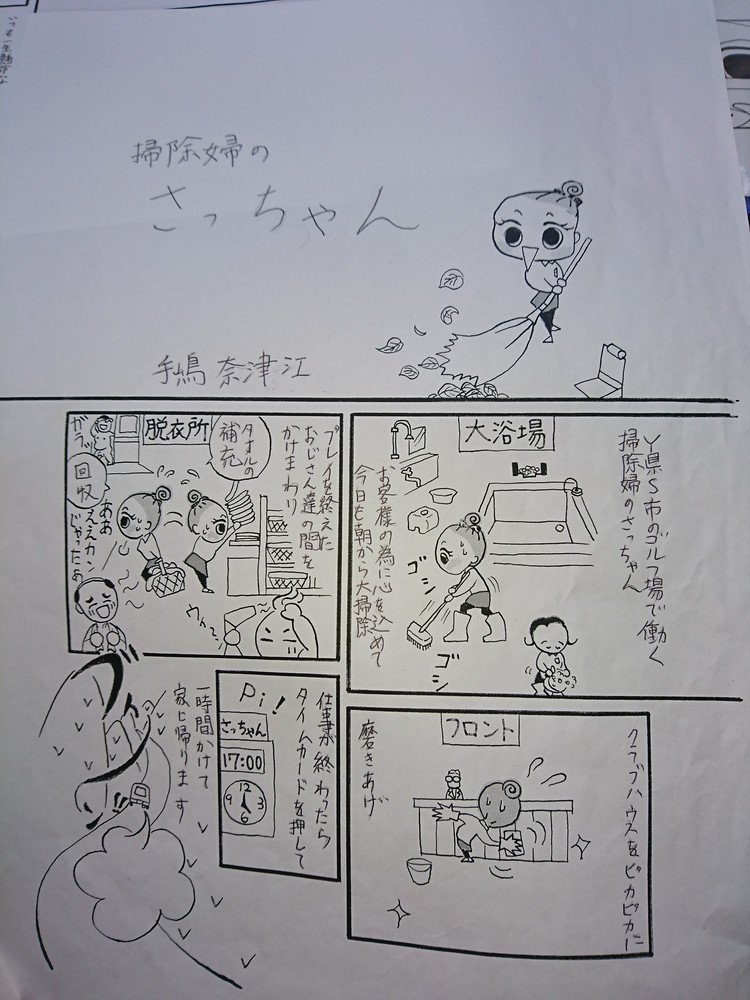 掃除婦の
さっちゃん
手嶋 奈津江
Y県S市のゴルフ場で働く
掃除婦のさっちゃん
大浴場
お客様の為に心を込めて
今日も朝から大掃除
ゴシ
ゴシ
プレイを終えた
おじさん達の間を
かけまわり
タオルの
補充
脱衣所
ガラッ
回収
ああ
ええカン
じゃったぁ
クラブハウスをピカピカに
フロント
磨きあげ
仕事が終わったら
タイムカードを押して
Pi!
さっちゃん
17:00
12
9 3
6
一時間かけて
家に帰ります